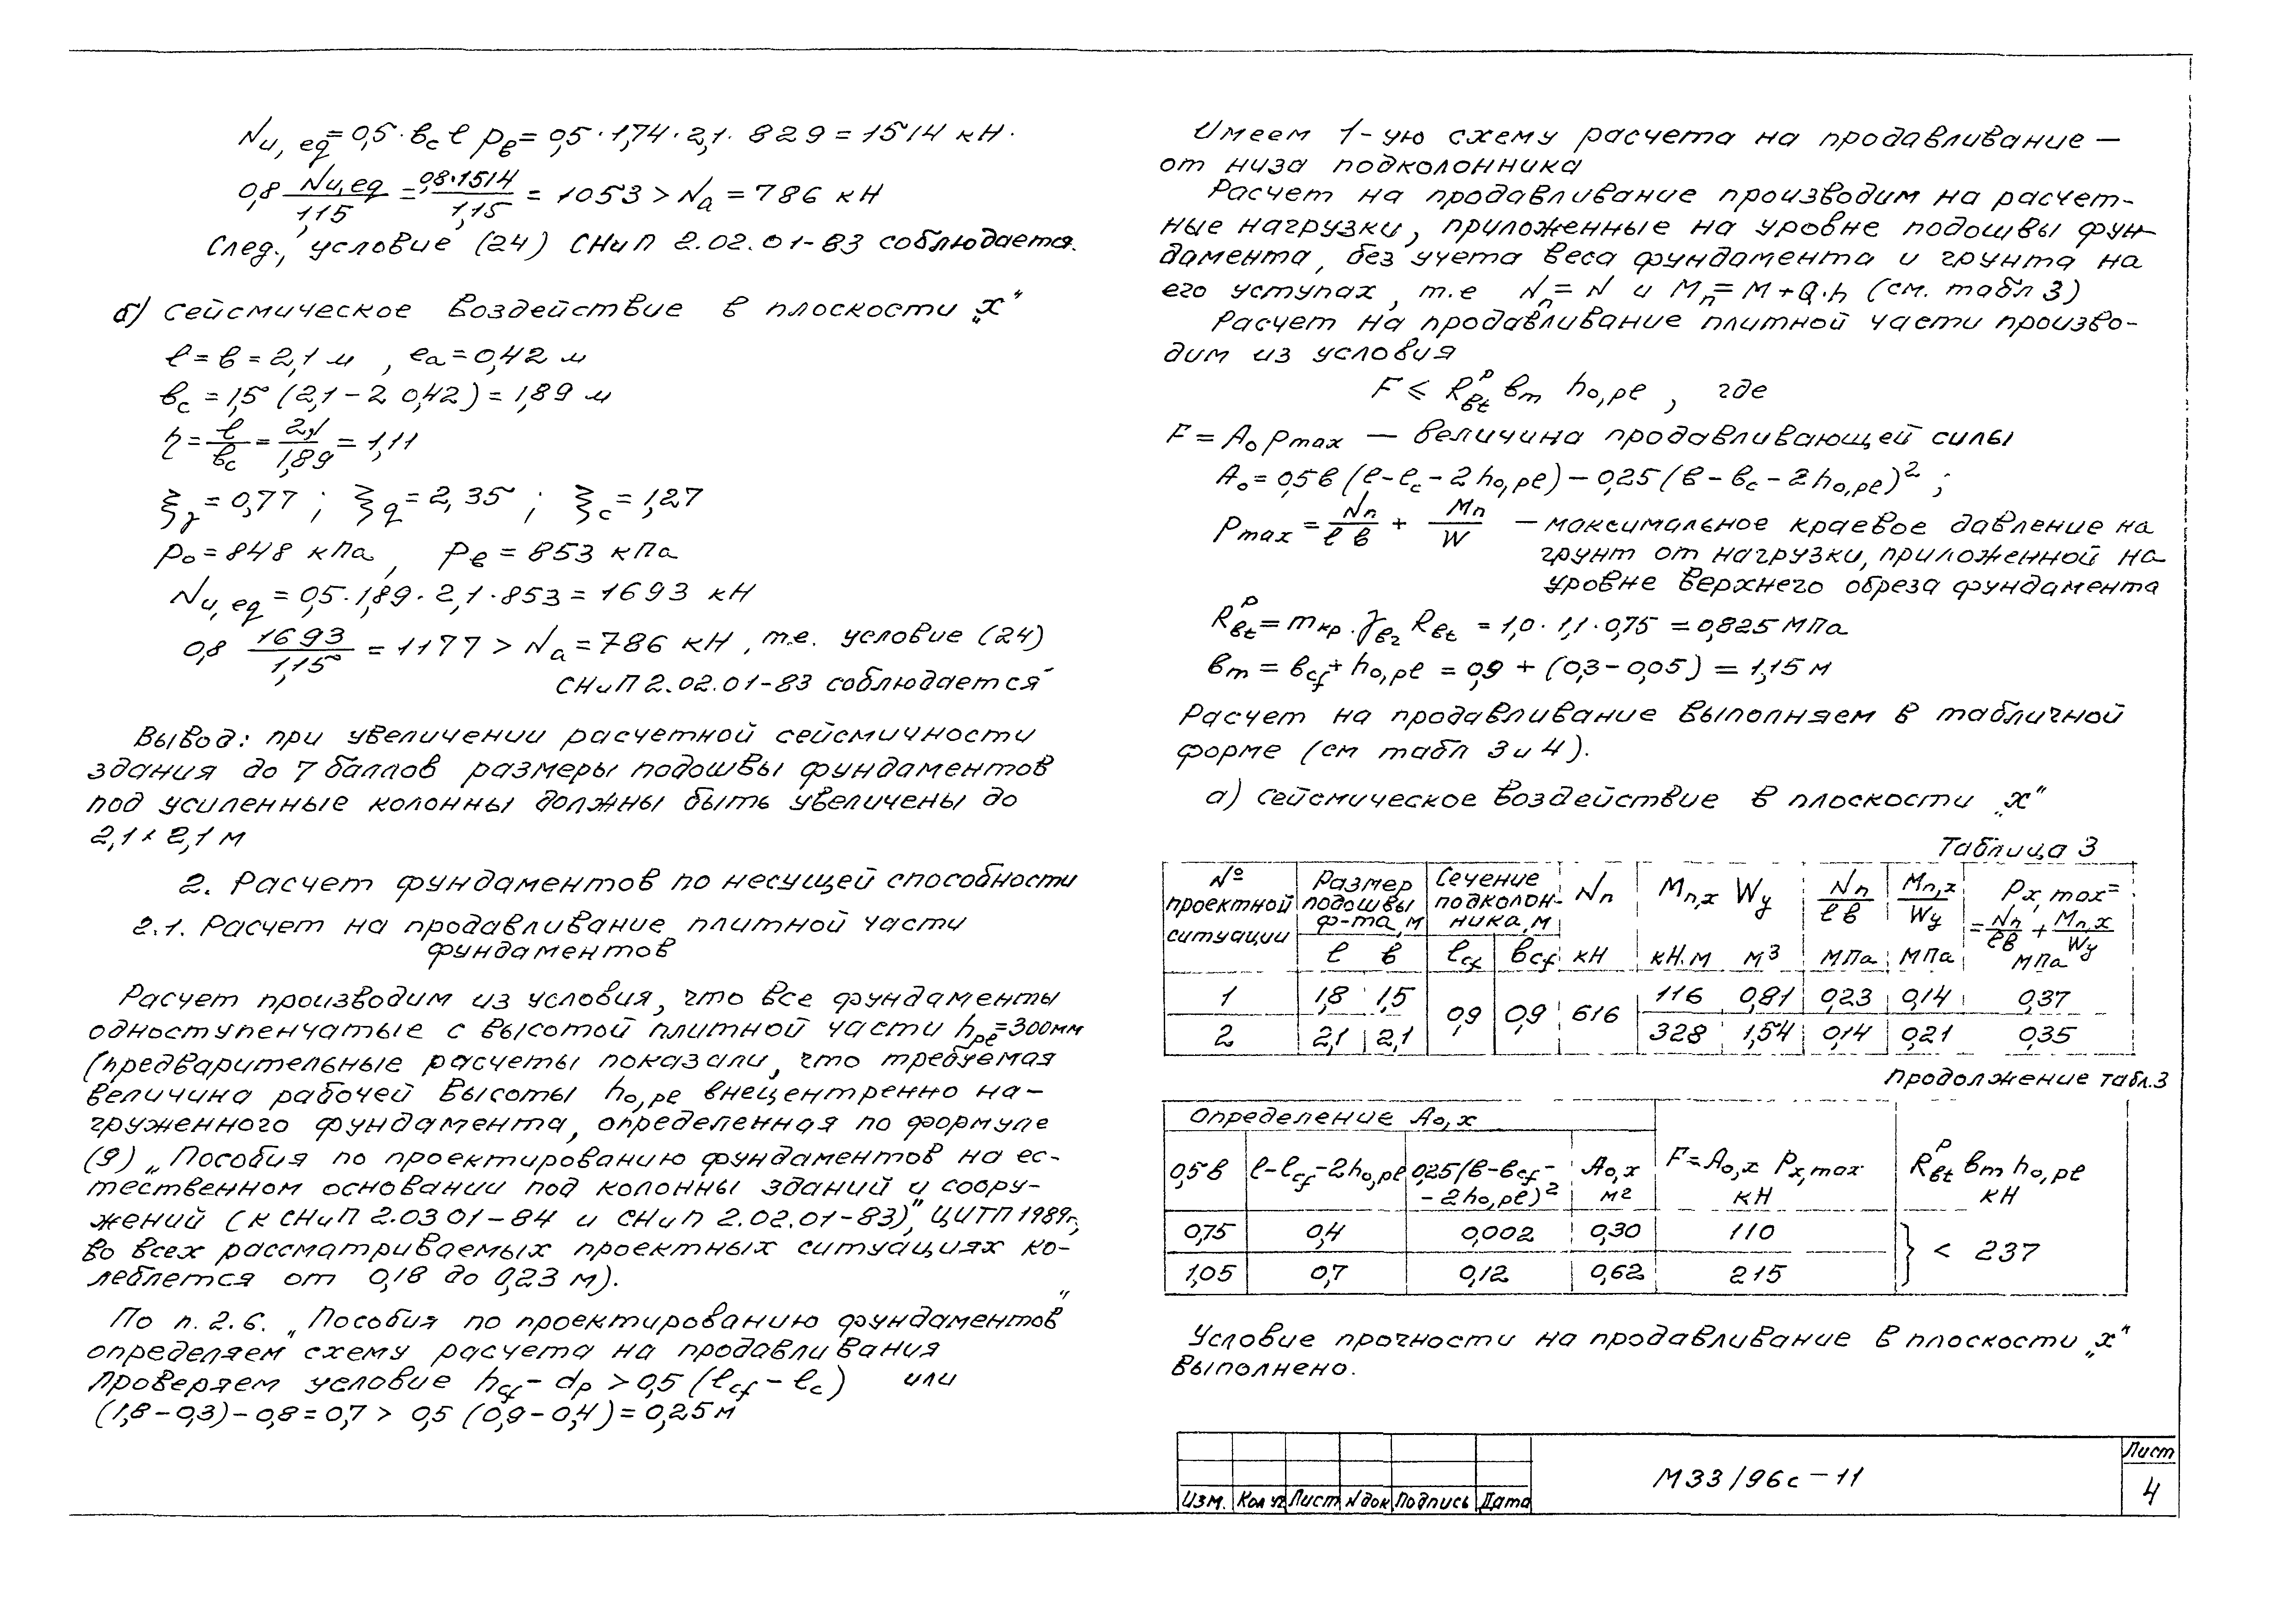 Nu, eq = 0,5 · bc l pb = 0,5 · 1,74 · 2,1 · 829 = 1514 кН.
0,8 Nu,eq / 1,15 = 0,8·1514 / 1,15 = 1053 > Na = 786 кН
След., условие (24) СНиП 2.02.01-83 соблюдается.
б) сейсмическое воздействие в плоскости „х"
l = b = 2,1 м , ea = 0,42 м
bc = 1,5 (2,1 - 2 0,42) = 1,89 м
η = l / bc = 2,1 / 1,89 = 1,11
ξγ = 0,77 ; ξq = 2,35 ; ξc = 1,27
po = 848 кПа , pb = 853 кПа
Nu, eq = 0,5 · 1,89 · 2,1 · 853 = 1693 кН
0,8 1693 / 1,15 = 1177 > Na = 786 кН , т.е. условие (24)
СНиП 2.02.01-83 соблюдается
Вывод: при увеличении расчетной сейсмичности
здания до 7 баллов размеры подошвы фундаментов
под усиленные колонны должны быть увеличены до
2,1 × 2,1 м
2. Расчет фундаментов по несущей способности
2.1. Расчет на продавливание плитной части
фундаментов
Расчет производим из условия, что все фундаменты
одноступенчатые с высотой плитной части hpl = 300мм
(предварительные расчеты показали, что требуемая
величина рабочей высоты ho,pl внецентренно на-
груженного фундамента, определенная по формуле
(9) „Пособия по проектированию фундаментов на ес-
тественном основании под колонны зданий и соору-
жений (к СНиП 2.03 01-84 и СНиП 2.02.01-83)", ЦИТП 1989г,
во всех рассматриваемых проектных ситуациях ко-
леблется от 0,18 до 0,23 м).
По п. 2.6. „Пособия по проектированию фундаментов"
определяем схему расчета на продавливания
Проверяем условие hcf - dp > 0,5 (lcf - lc) или
(1,8 - 0,3) - 0,8 = 0,7 > 0,5 (0,9 - 0,4) = 0,25 м
Имеем 1-ую схему расчета на продавливание —
от низа подколонника
Расчет на продавливание производим на расчет-
ные нагрузки, приложенные на уровне подошвы фун-
дамента, без учета веса фундамента и грунта на
его уступах, т.е Nn = N и Mn = M + Q·h (см. табл 3)
Расчет на продавливание плитной части произво-
дим из условия
F ≤ Rᵖbt bm ho,pl , где
F = Ao pmax — величина продавливающей силы
Ao = 0,5b (l - lc - 2ho,pl) - 0,25 (b - bc - 2ho,pl)² ;
pmax = Nn / l b + Mn / W — максимальное краевое давление на
грунт от нагрузки, приложенной на
уровне верхнего обреза фундамента
Rᵖbt = mкр · γb2 Rbt = 1,0 · 1,1 · 0,75 = 0,825 МПа
bm = bcf + ho,pl = 0,9 + (0,3 - 0,05) = 1,15 м
Расчет на продавливание выполняем в табличной
форме (см табл 3 и 4).
а) сейсмическое воздействие в плоскости „х"
Таблица 3
№ проектной ситуации | Размер подошвы ф-та, м | Сечение подколон- ника, м | Nn | Mn,x | Wy | Nn / l b | Mn,x / Wy | Px, max = = Nn / lb + Mn,x / Wy
l | b | lcf | bcf | кН | кН.м | м³ | МПа | МПа | МПа
1 | 1,8 | 1,5 | 0,9 | 0,9 | 616 | 116 | 0,81 | 0,23 | 0,14 | 0,37
2 | 2,1 | 2,1 | 328 | 1,54 | 0,14 | 0,21 | 0,35
Продолжение табл.3
Определение Ao,x
0,5b | l - lcf - 2ho,pl | 0,25 (b - bcf - - 2ho,pl)² | Ao,x м² | F = Ao,x Px,max кН | Rᵖbt bm ho,pl кН
0,75 | 0,4 | 0,002 | 0,30 | 110 | } < 237
1,05 | 0,7 | 0,12 | 0,62 | 215
Условие прочности на продавливание в плоскости „х"
выполнено.
Изм. | Кол уч | Лист | N док | Подпись | Дата
М33/96с-11
Лист
4